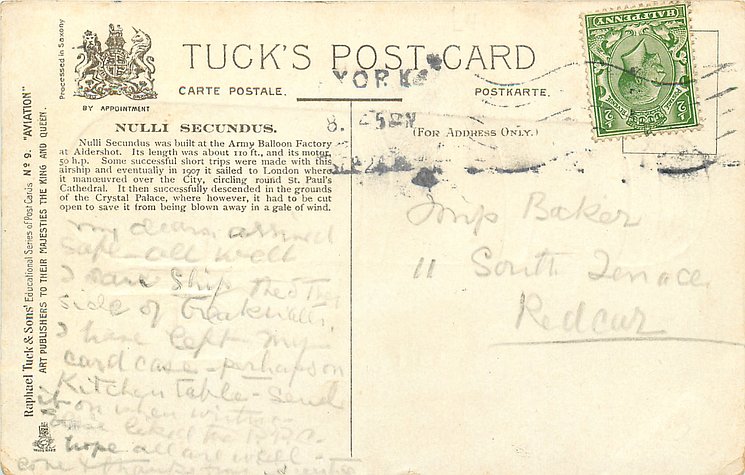 TUCK'S POST CARD
CARTE POSTALE.
POSTKARTE.
BY APPOINTMENT
Processed in Saxony
(FOR ADDRESS ONLY.)
HALFPENNY
YORK
8.
SEP
NULLI SECUNDUS.
Nulli Secundus was built at the Army Balloon Factory
at Aldershot. Its length was about 110 ft., and its motor,
50 h.p. Some successful short trips were made with this
airship and eventually in 1907 it sailed to London where
it manœuvred over the City, circling round St. Paul's
Cathedral. It then successfully descended in the grounds
of the Crystal Palace, where however, it had to be cut
open to save it from being blown away in a gale of wind.
Raphael Tuck & Sons' Educational Series of Post Cards Nº 9. "AVIATION"
ART PUBLISHERS TO THEIR MAJESTIES THE KING AND QUEEN.
My dears arrived
safe - all well
I saw Ship
side of
I have left my
card case - perhaps on
Kitchen table - send
it on when
hope all are well -
Baker
11 South Terrace
Redcar